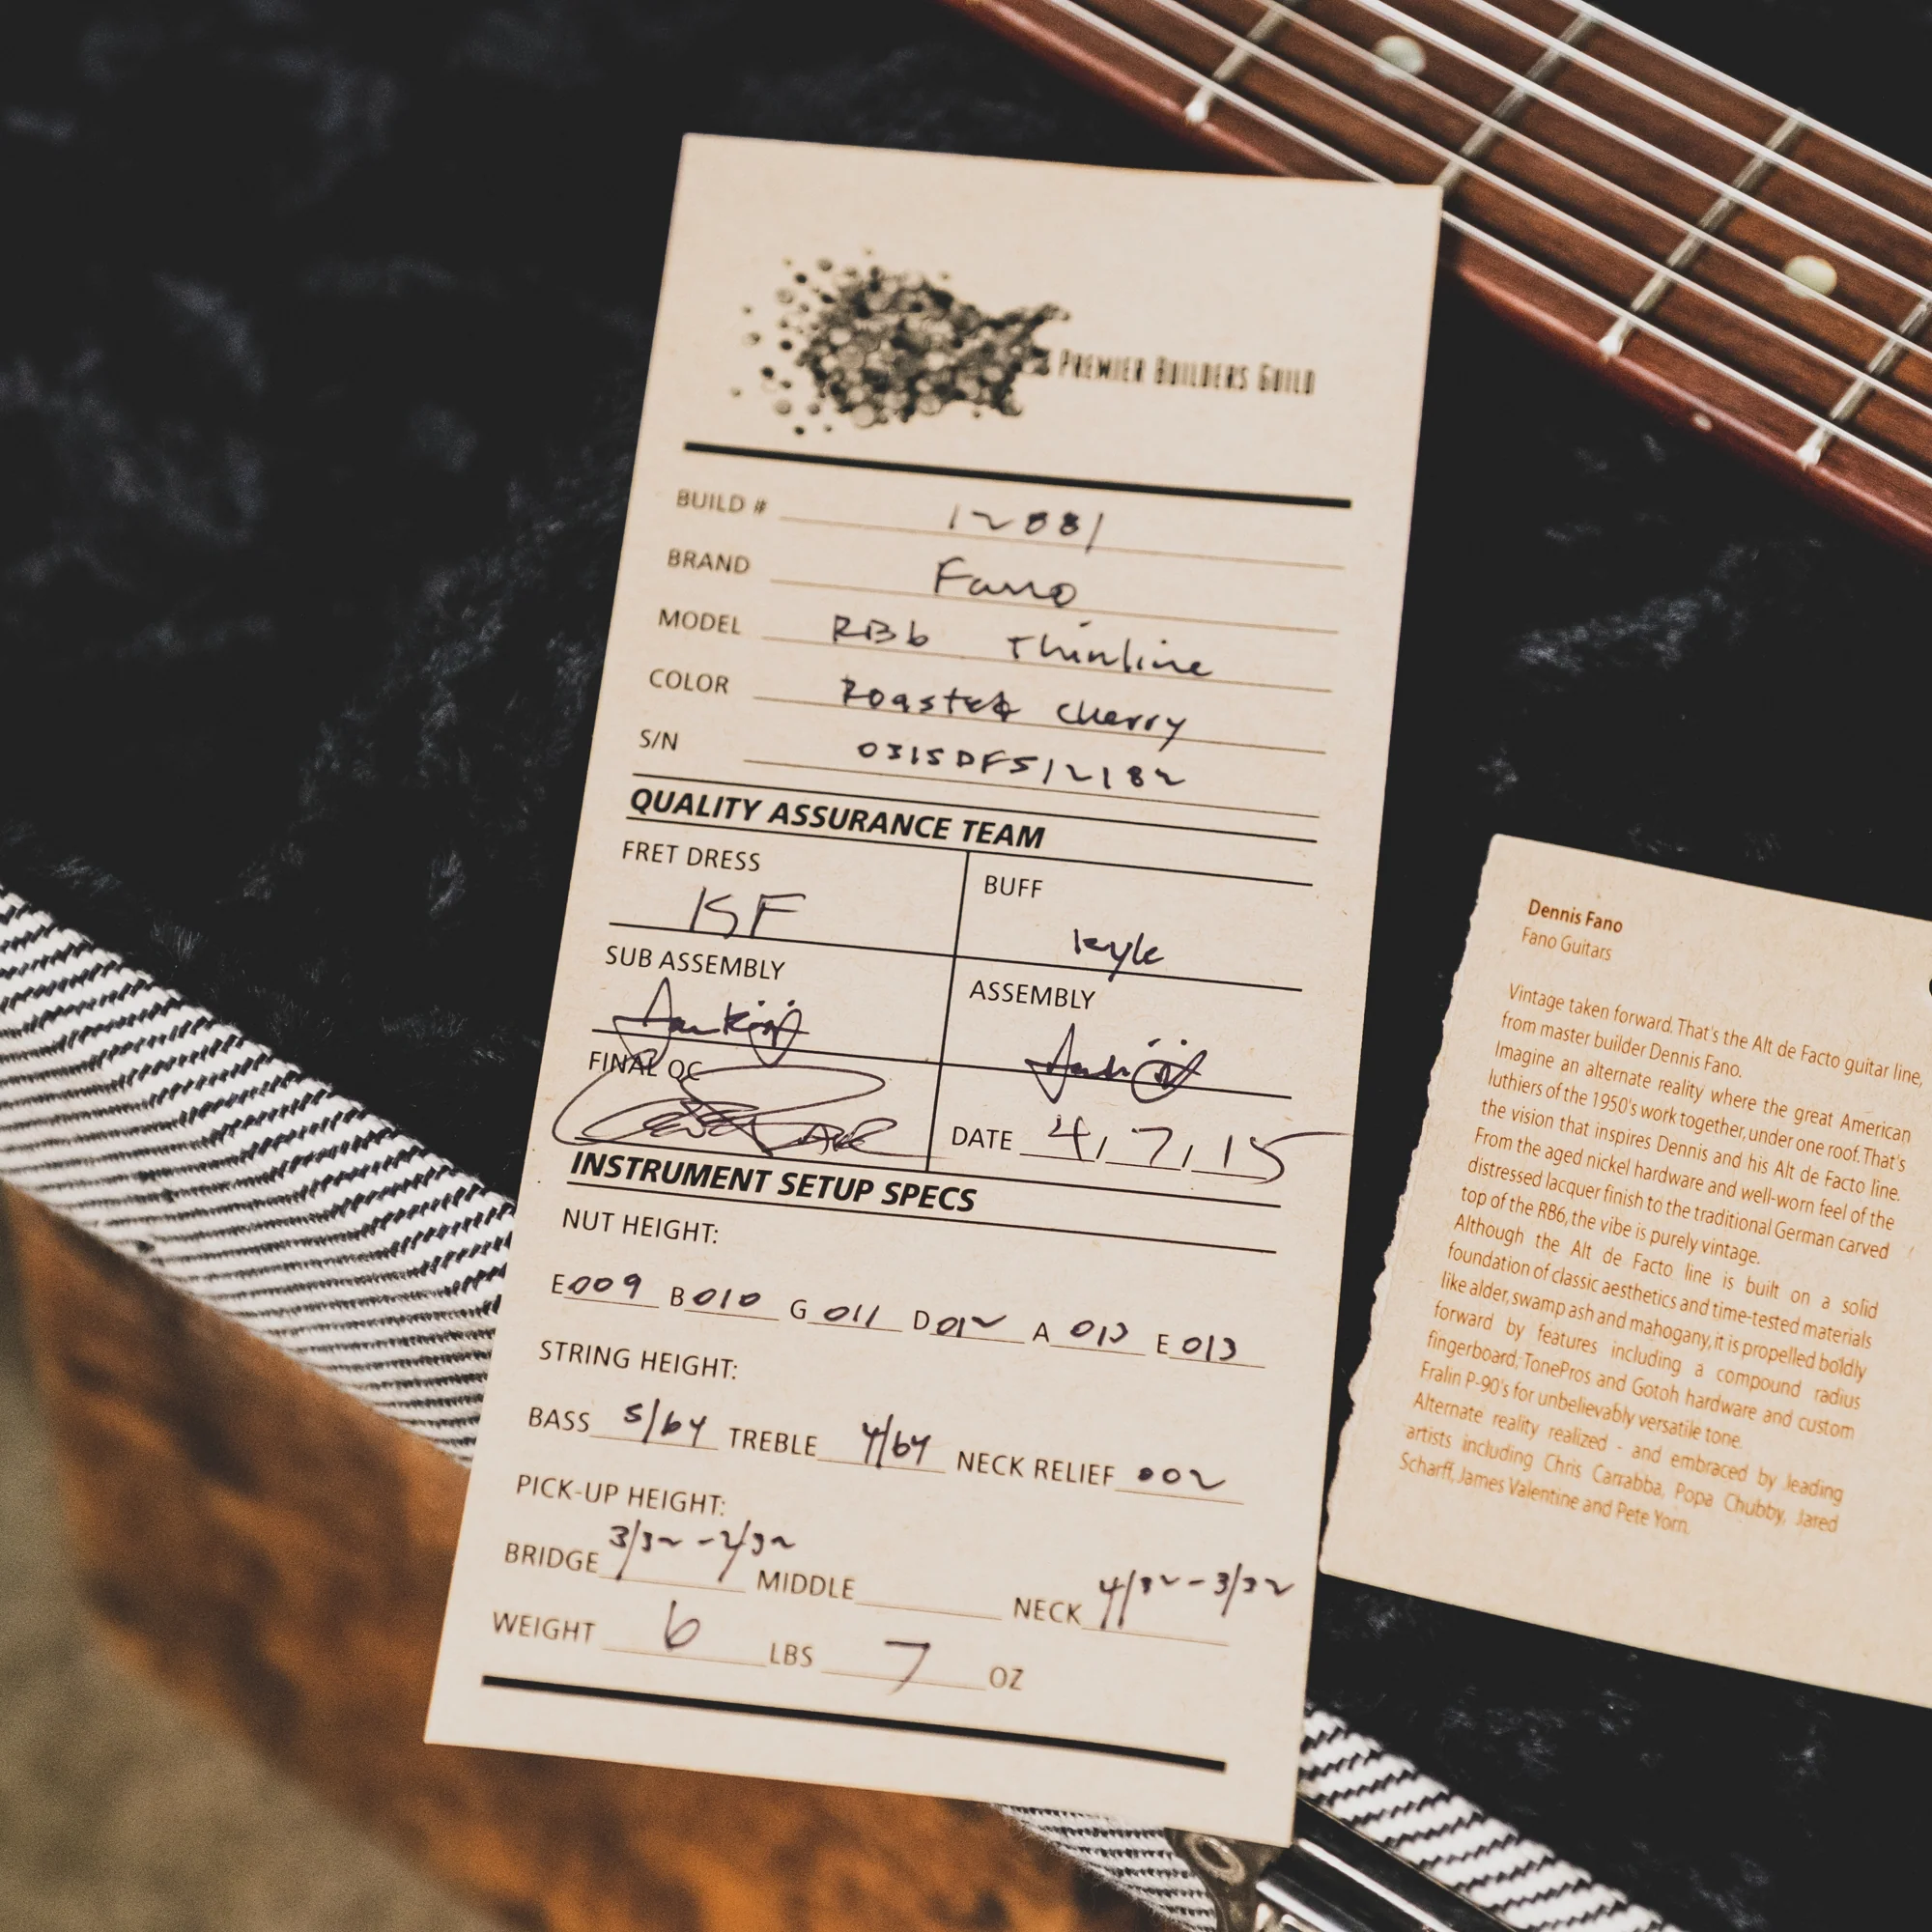 PREMIER BUILDERS GUILD
BUILD # 12881
BRAND Fano
MODEL RB6 Thinline
COLOR Roasted Cherry
S/N 0315DFS12182
QUALITY ASSURANCE TEAM
FRET DRESS
BUFF
KSF
Kyle
SUB ASSEMBLY
ASSEMBLY
FINAL QC
DATE 4/7/15
INSTRUMENT SETUP SPECS
NUT HEIGHT:
E 009 B 010 G 011 D 012 A 013 E 013
STRING HEIGHT:
BASS 5/64 TREBLE 4/64 NECK RELIEF .002
PICK-UP HEIGHT:
BRIDGE 3/32 - 2/32 MIDDLE NECK 4/32 - 3/32
WEIGHT 6 LBS 7 OZ
Dennis Fano
Fano Guitars
Vintage taken forward. That's the Alt de Facto guitar line,
from master builder Dennis Fano.
Imagine an alternate reality where the great American
luthiers of the 1950's work together, under one roof. That's
the vision that inspires Dennis and his Alt de Facto line.
From the aged nickel hardware and well-worn feel of the
distressed lacquer finish to the traditional German carved
top of the RB6, the vibe is purely vintage.
Although the Alt de Facto line is built on a solid
foundation of classic aesthetics and time-tested materials
like alder, swamp ash and mahogany, it is propelled boldly
forward by features including a compound radius
fingerboard, TonePros and Gotoh hardware and custom
Fralin P-90's for unbelievably versatile tone.
Alternate reality realized - and embraced by leading
artists including Chris Carrabba, Popa Chubby, Jared
Scharff, James Valentine and Pete Yorn.